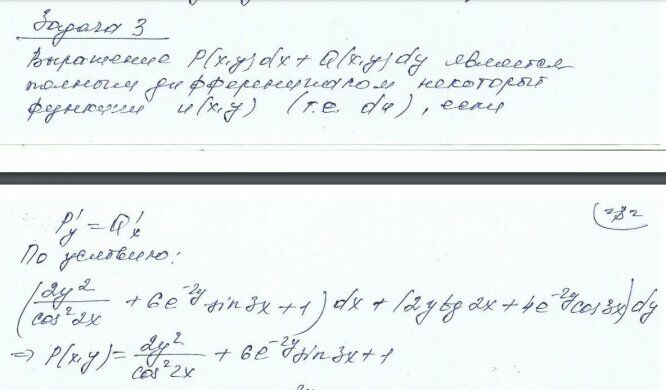 Задача 3
Выражение P(x,y)dx + Q(x,y)dy является
полным дифференциалом некоторый
функции u(x,y) (т.е. du), если
P'y = Q'x
По условию:
(2y²/cos²2x + 6e^-2y sin3x + 1)dx + (2y tg 2x + 4e^-2y cos3x)dy
⇒ P(x,y) = 2y²/cos²2x + 6e^-2y sin3x + 1